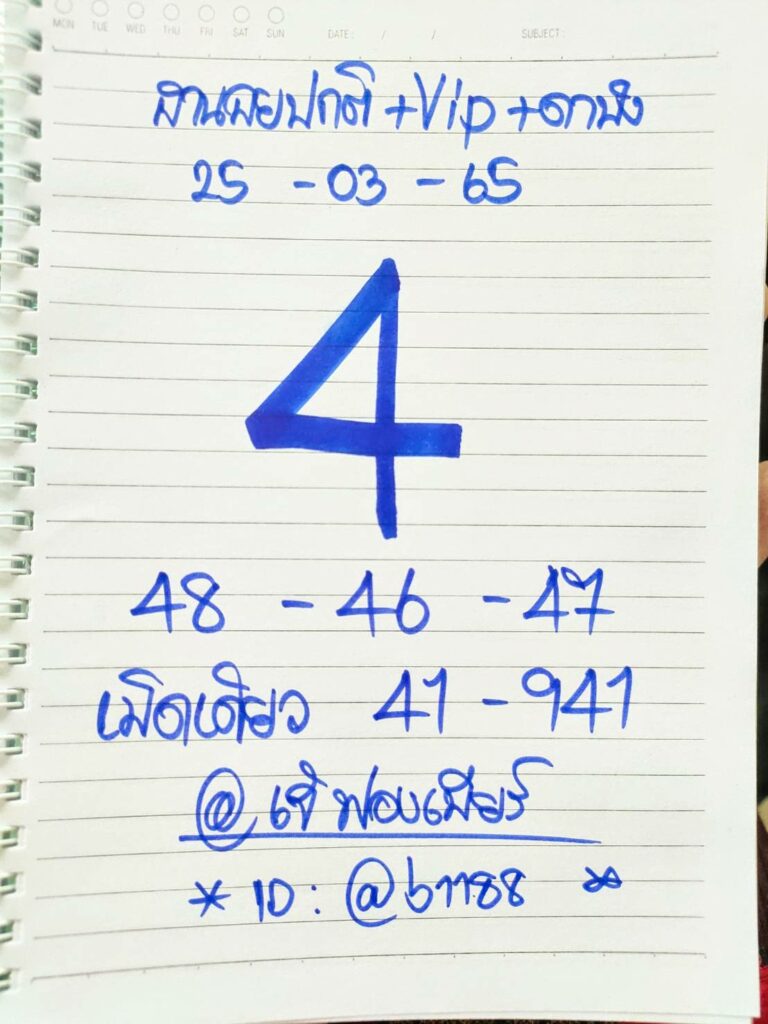 MON TUE WED THU FRI SAT SUN DATE: / / SUBJECT:
ฮานอยปกติ+Vip+ดาปัง
25 - 03 - 65
4
48 - 46 - 47
เม็ดเดียว 41 - 941
@ เจ๊ฟองเบียร์
* ID: @b1188 *